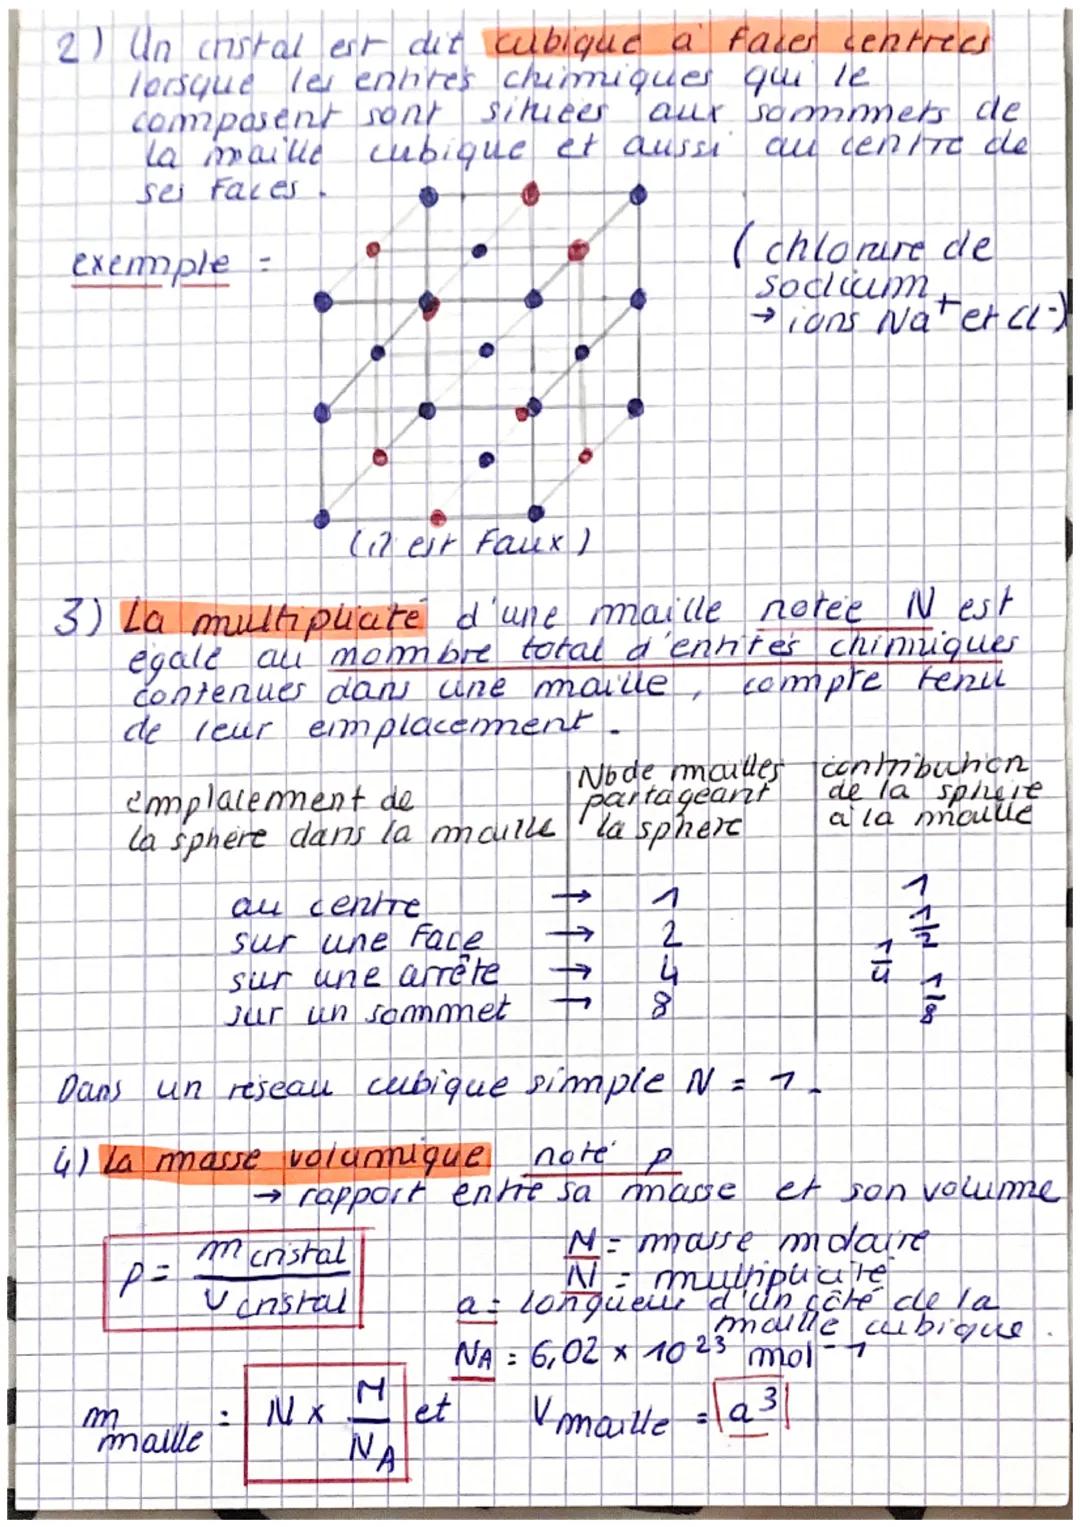 2) Un cristal est dit cubique à faces centrées
lorsque les entités chimiques qui le
composent sont situées aux sommmets de
la maille cubique et aussi au centre de
ses faces.
exemple :
( chlorure de
sodium
→ ions Na+ et Cl-)
(il est faux)
3) La multiplicité d'une maille notée N est
égale au nombre total d'entités chimiques
contenues dans une maille, compte tenu
de leur emplacement.
emplacement de
la sphère dans la maille
Nb de mailles
partageant
la sphère
contribution
de la sphère
à la maille
au centre → 1 1
sur une face → 2 1/2
sur une arrête → 4 1/4
sur un sommet → 8 1/8
Dans un réseau cubique simple N = 1.
4) La masse volumique noté ρ
→ rapport entre sa masse et son volume
ρ = m cristal / V cristal
M = masse molaire
N = multiplicité
a = longueur d'un côté de la
maille cubique.
NA = 6,02 × 10^23 mol^-1
m maille = N × M/NA et V maille = a³